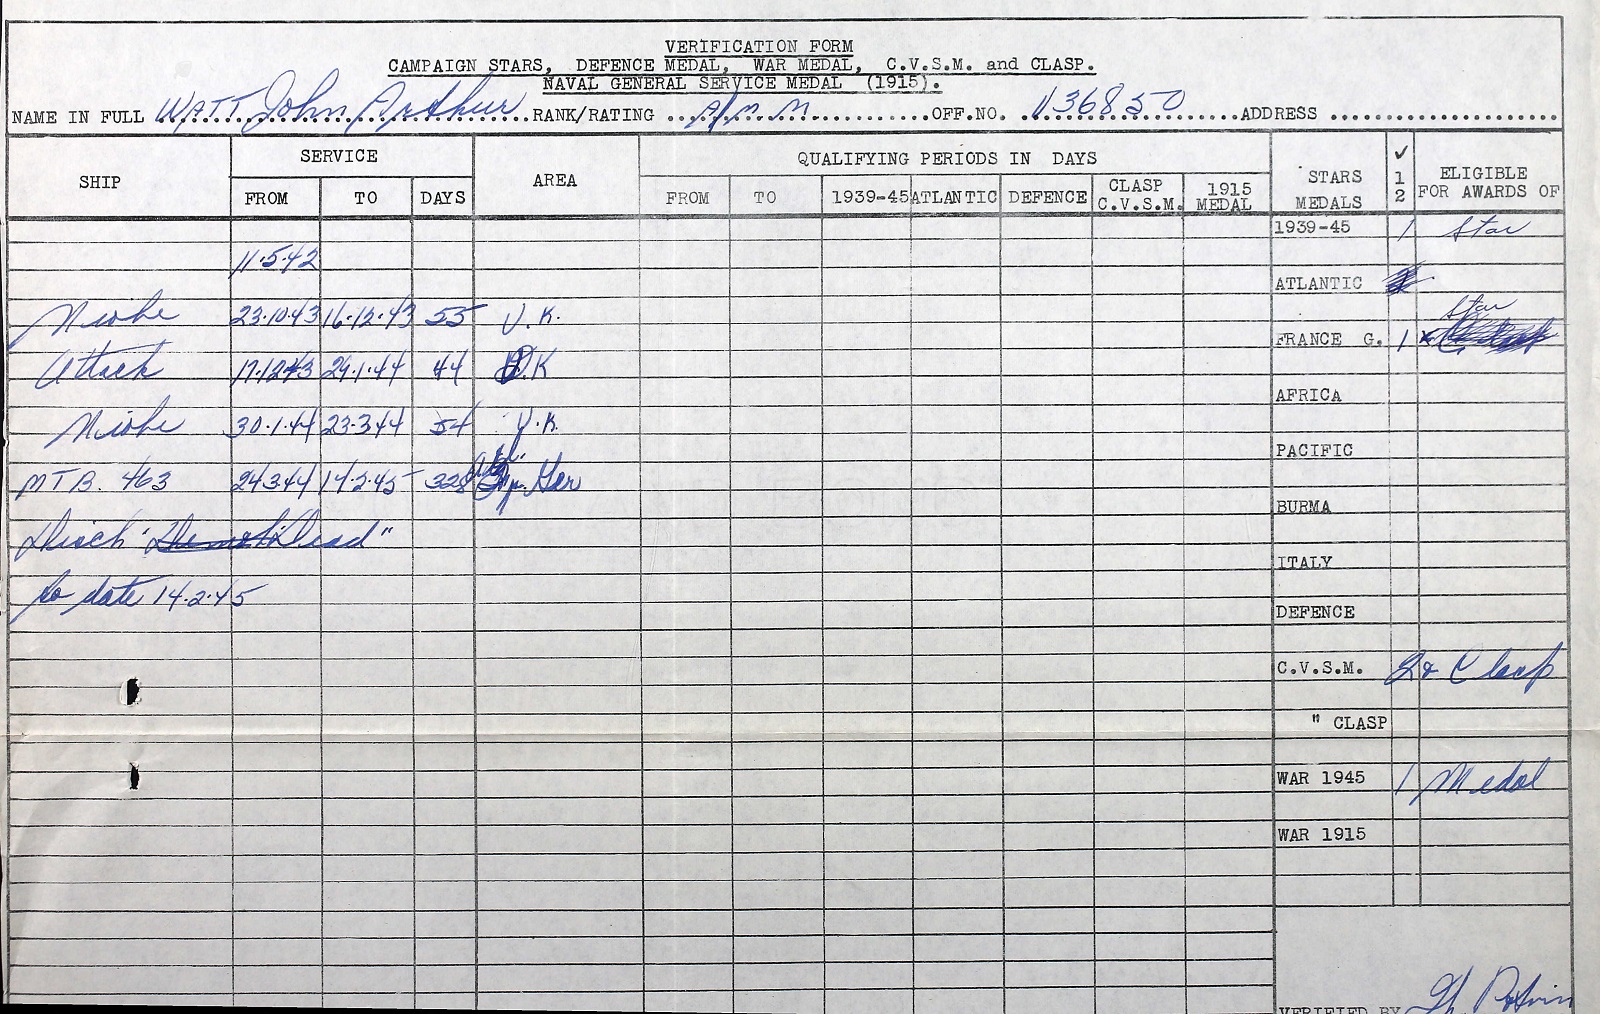 VERIFICATION FORM
CAMPAIGN STARS, DEFENCE MEDAL, WAR MEDAL, C.V.S.M. and CLASP.
NAVAL GENERAL SERVICE MEDAL (1915).
NAME IN FULL WATT John Arthur RANK/RATING A/M M OFF.NO. V36850 ADDRESS
SHIP SERVICE AREA QUALIFYING PERIODS IN DAYS STARS MEDALS ✓ 1 2 ELIGIBLE FOR AWARDS OF
FROM TO DAYS FROM TO 1939-45 ATLANTIC DEFENCE CLASP C.V.S.M. 1915 MEDAL
1939-45 1 Star
11.5.42
ATLANTIC
Niobe 23.10.43 16.12.43 55 U.K. Star
FRANCE G. 1
Attack 17.12.43 29.1.44 44 U.K
AFRICA
Niobe 30.1.44 23.3.44 54 U.K.
PACIFIC
MTB. 463 24.3.44 14.2.45 328 Ger
BURMA
Disch "Dead"
ITALY
to date 14.2.45
DEFENCE
C.V.S.M. 2 & Clasp
" CLASP
WAR 1945 1 Medal
WAR 1915
VERIFIED BY